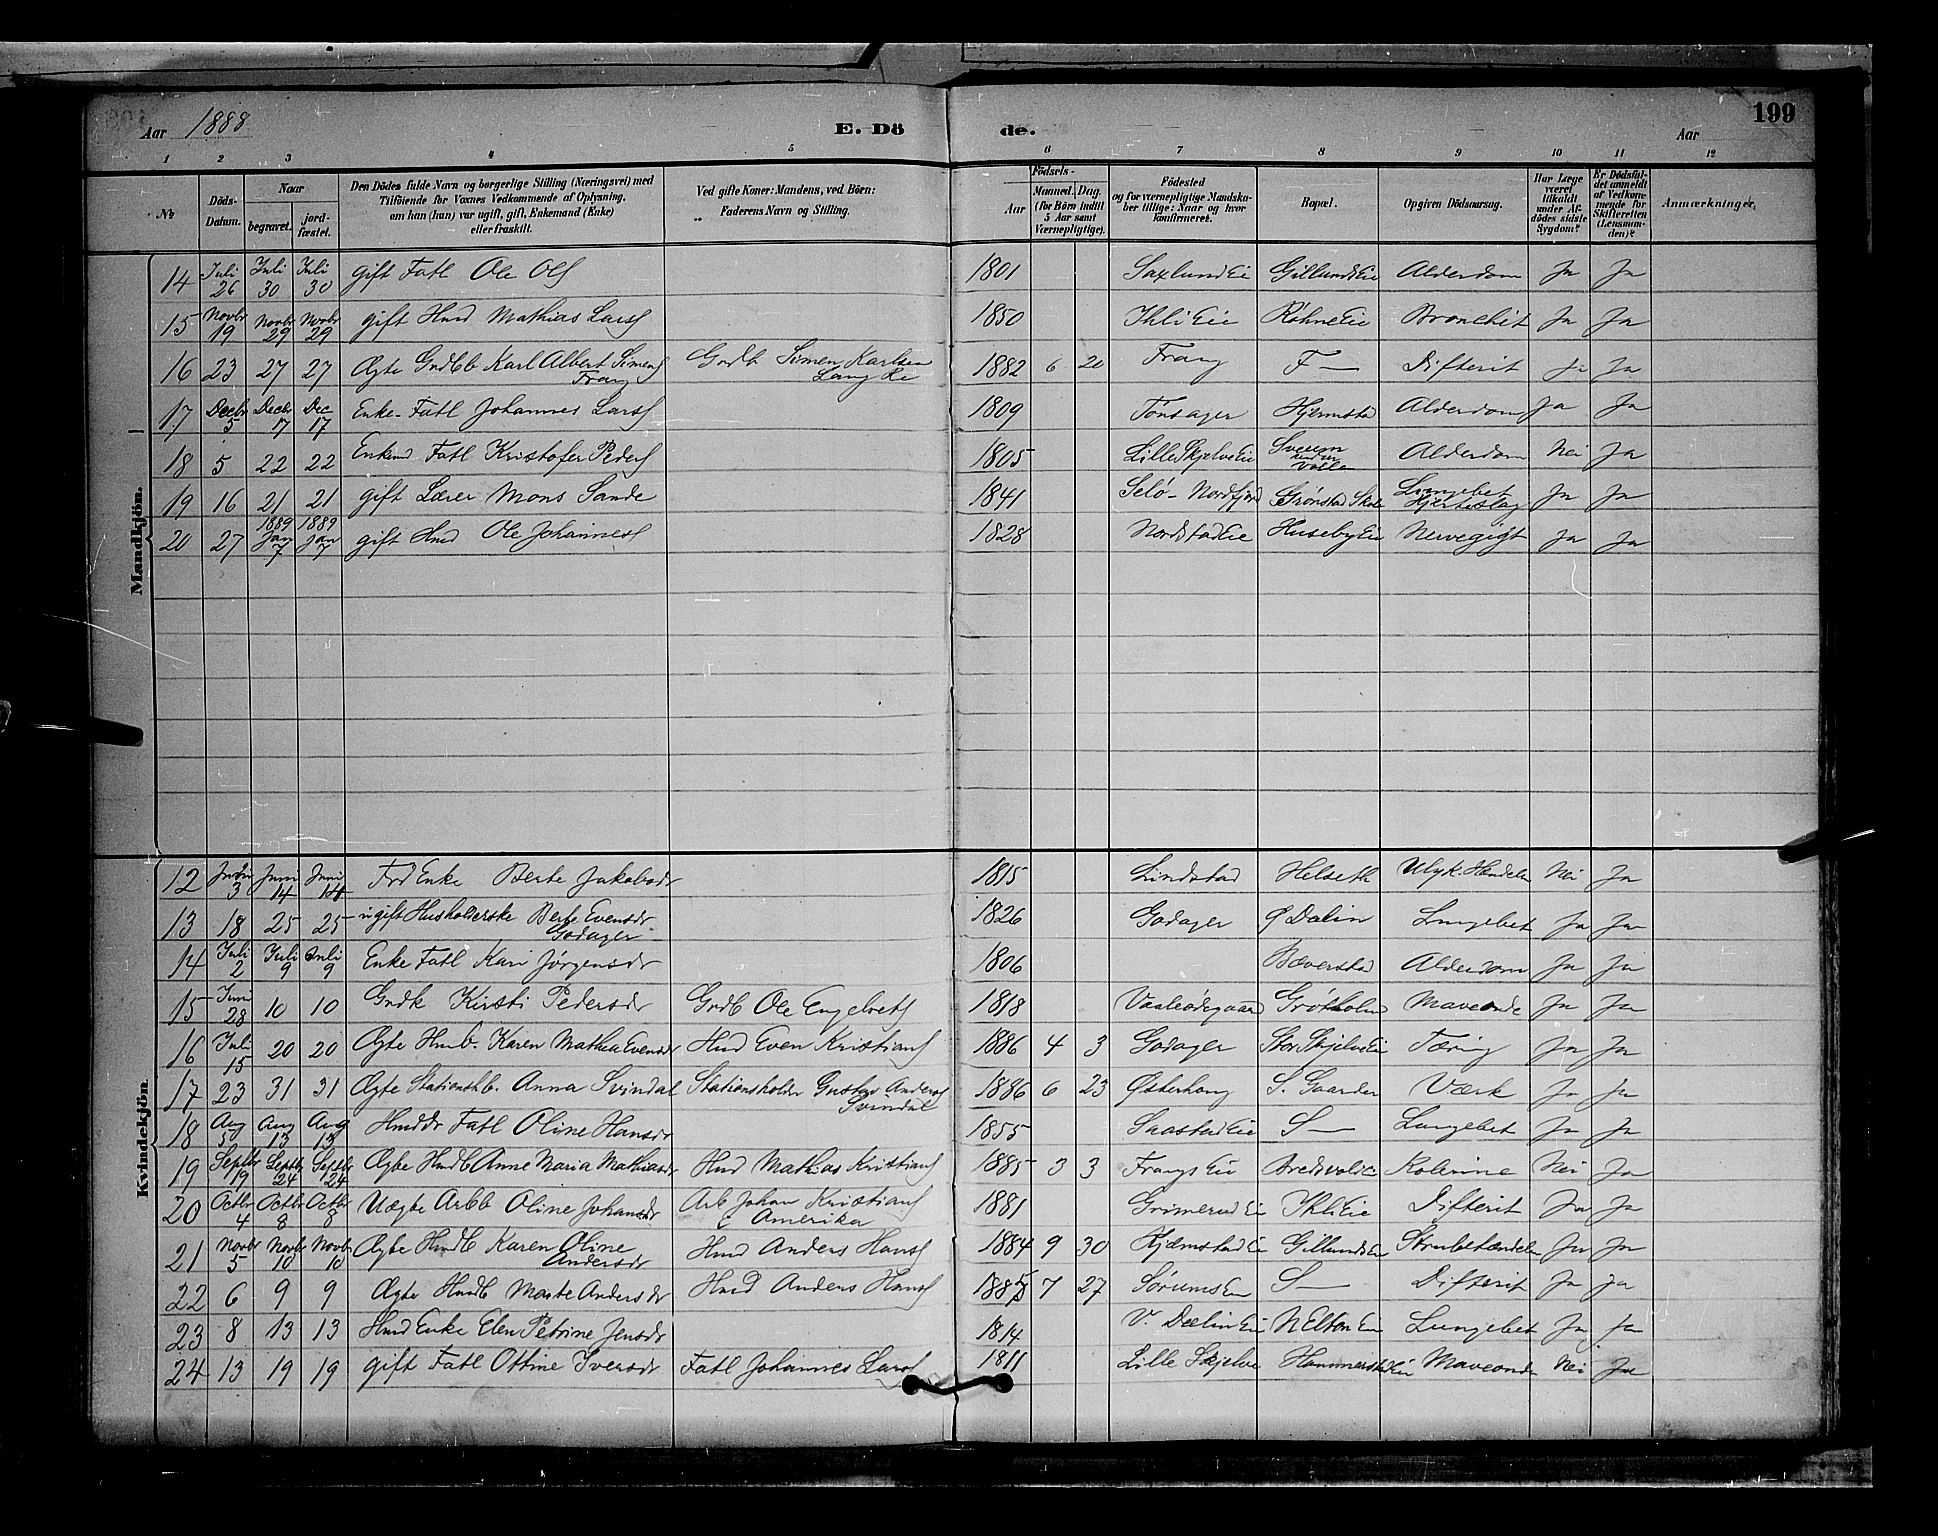 Aar 1888 E. Dö de. Aar 199
1 2 3 4 5 6 7 8 9 10 11 12
No
Döds-Datum.
Naar
begravet.
jord-fæstet.
Den Dödes fulde Navn og borgerlige Stilling (Næringsvei) med
Tilföiende for Voxnes Vedkommende af Oplysning,
om han (hun) var ugift, gift, Enkemand (Enke)
eller fraskilt.
Ved gifte Koner: Mandens, ved Börn:
Faderens Navn og Stilling.
Födsels-
Aar
Maaned. Dag.
(for Börn indtil
5 Aar samt
Værnepligtige).
Födested
og for værnepligtige Mandska-
ber tillige: Naar og hvor
konfirmeret.
Bopæl.
Opgiven Dödsaarsag.
Har Læge
været
tilkaldt
under Af-
dödes sidste
Sygdom?
Er Dödsfal-
det anmeldt
af Vedkom-
mende for
Skifteretten
(Lensman-
den)?
Anmærkninger.
Mandkjön.
14 Juli 26 Juli 30 Juli 30 gift Fatl Ole Ols 1801 Saxlund Eie Gillunds Eie Alderdom Ja Ja
15 Novbr 19 Novbr 29 Novbr 29 gift Hmd Mathias Lars 1850 Ihli Eie Røhne Eie Bronchit Ja Ja
16 23 27 27 Ægte Grdbb Karl Albert Simens Frang Grdb Simen Karlsen 1882 6 20 Frang F — Difterit Ja Ja
17 Decbr 5 Decbr 17 Dec 17 Enke- Fatl Johannes Lars 1809 Tonsager Hjermstad Alderdom Ja Ja
18 5 22 22 Enkemd Fatl Kristofer Peders 1805 Lille Skjelve Eie Alderdom Nei Ja
19 16 21 21 gift Lærer Mons Sande 1841 Selø- Nordfjord Grønstad Skole Lungebet Hjerteslag Ja Ja
20 27 1889 Jan 7 1889 Jan 7 gift Hmd Ole Johannes 1828 Nordstad Eie Huseby Eie Nervegigt Ja Ja
Kvindekjön.
12 Juni 3 Juni 14 Juni 14 Frd Enke Berte Jakobsdr 1815 Lindstad Helseth Ulyk. Hændelse Nei Ja
13 18 25 25 ugift Husholderske Berte Evensdr Godager 1826 Godager Ø Dælin Lungebet Ja Ja
14 Juli 2 Juli 9 Juli 9 Enke Fatl Kari Jørgensdr 1806 Bæverstad Alderdom Ja Ja
15 Juni 28 10 10 Grdk Kirsti Pedersdr Grdb Ole Engelbrets 1818 Vaaleødegaard Grøtholm Maveonde Ja Ja
16 Juli 15 20 20 Ægte Hmb. Karen Mathea Evensdr Hmd Even Kristians 1886 4 3 Godager Stor Skjelve Eie Tæring Ja Ja
17 23 31 31 Ægte Stationsh b. Anna Svindal Stationsholder Gustav Anders Svindal 1886 6 23 Østerhaug S. Gaarder Værk Ja Ja
18 Aug 5 Aug 13 Aug 13 Hmddr Fatl Oline Hansdr 1855 Saastad Eie S — Lungebet Ja Ja
19 Septbr 19 Septbr 24 Septbr 24 Ægte Hmdb Anne Maria Mathiasdr Hmd Mathias Kristians 1885 3 3 Frangs Eie Bredsvold Ei Kolerine Nei Ja
20 Octbr 4 Octbr 8 Octbr 8 Uægte Arbb Oline Johansdr Arb Johan Kristians i Amerika 1881 Grimerud Ei Ihli Eie Difterit Ja Ja
21 Novbr 5 Novbr 10 Novbr 10 Ægte Hmdb Karen Oline Andersdr Hmd Anders Hans 1884 9 30 Hjæmstad Ei Gillunds Ei Strubebetændelse Ja Ja
22 6 9 9 Ægte Hmdb Marte Andersdr Hmd Anders Hans 7 27 Sørums Ei S — Difterit Ja Ja
23 8 13 13 Hmd Enke Elen Petrine Jensdr 1814 V. Dælin Eie N Elton Ei Lungebet Ja Ja
24 13 19 19 gift Fatl Ottine Iversdr Fatl Johannes Lars 1811 Lille Skjelve Hammerstad Ei Maveonde Nei Ja